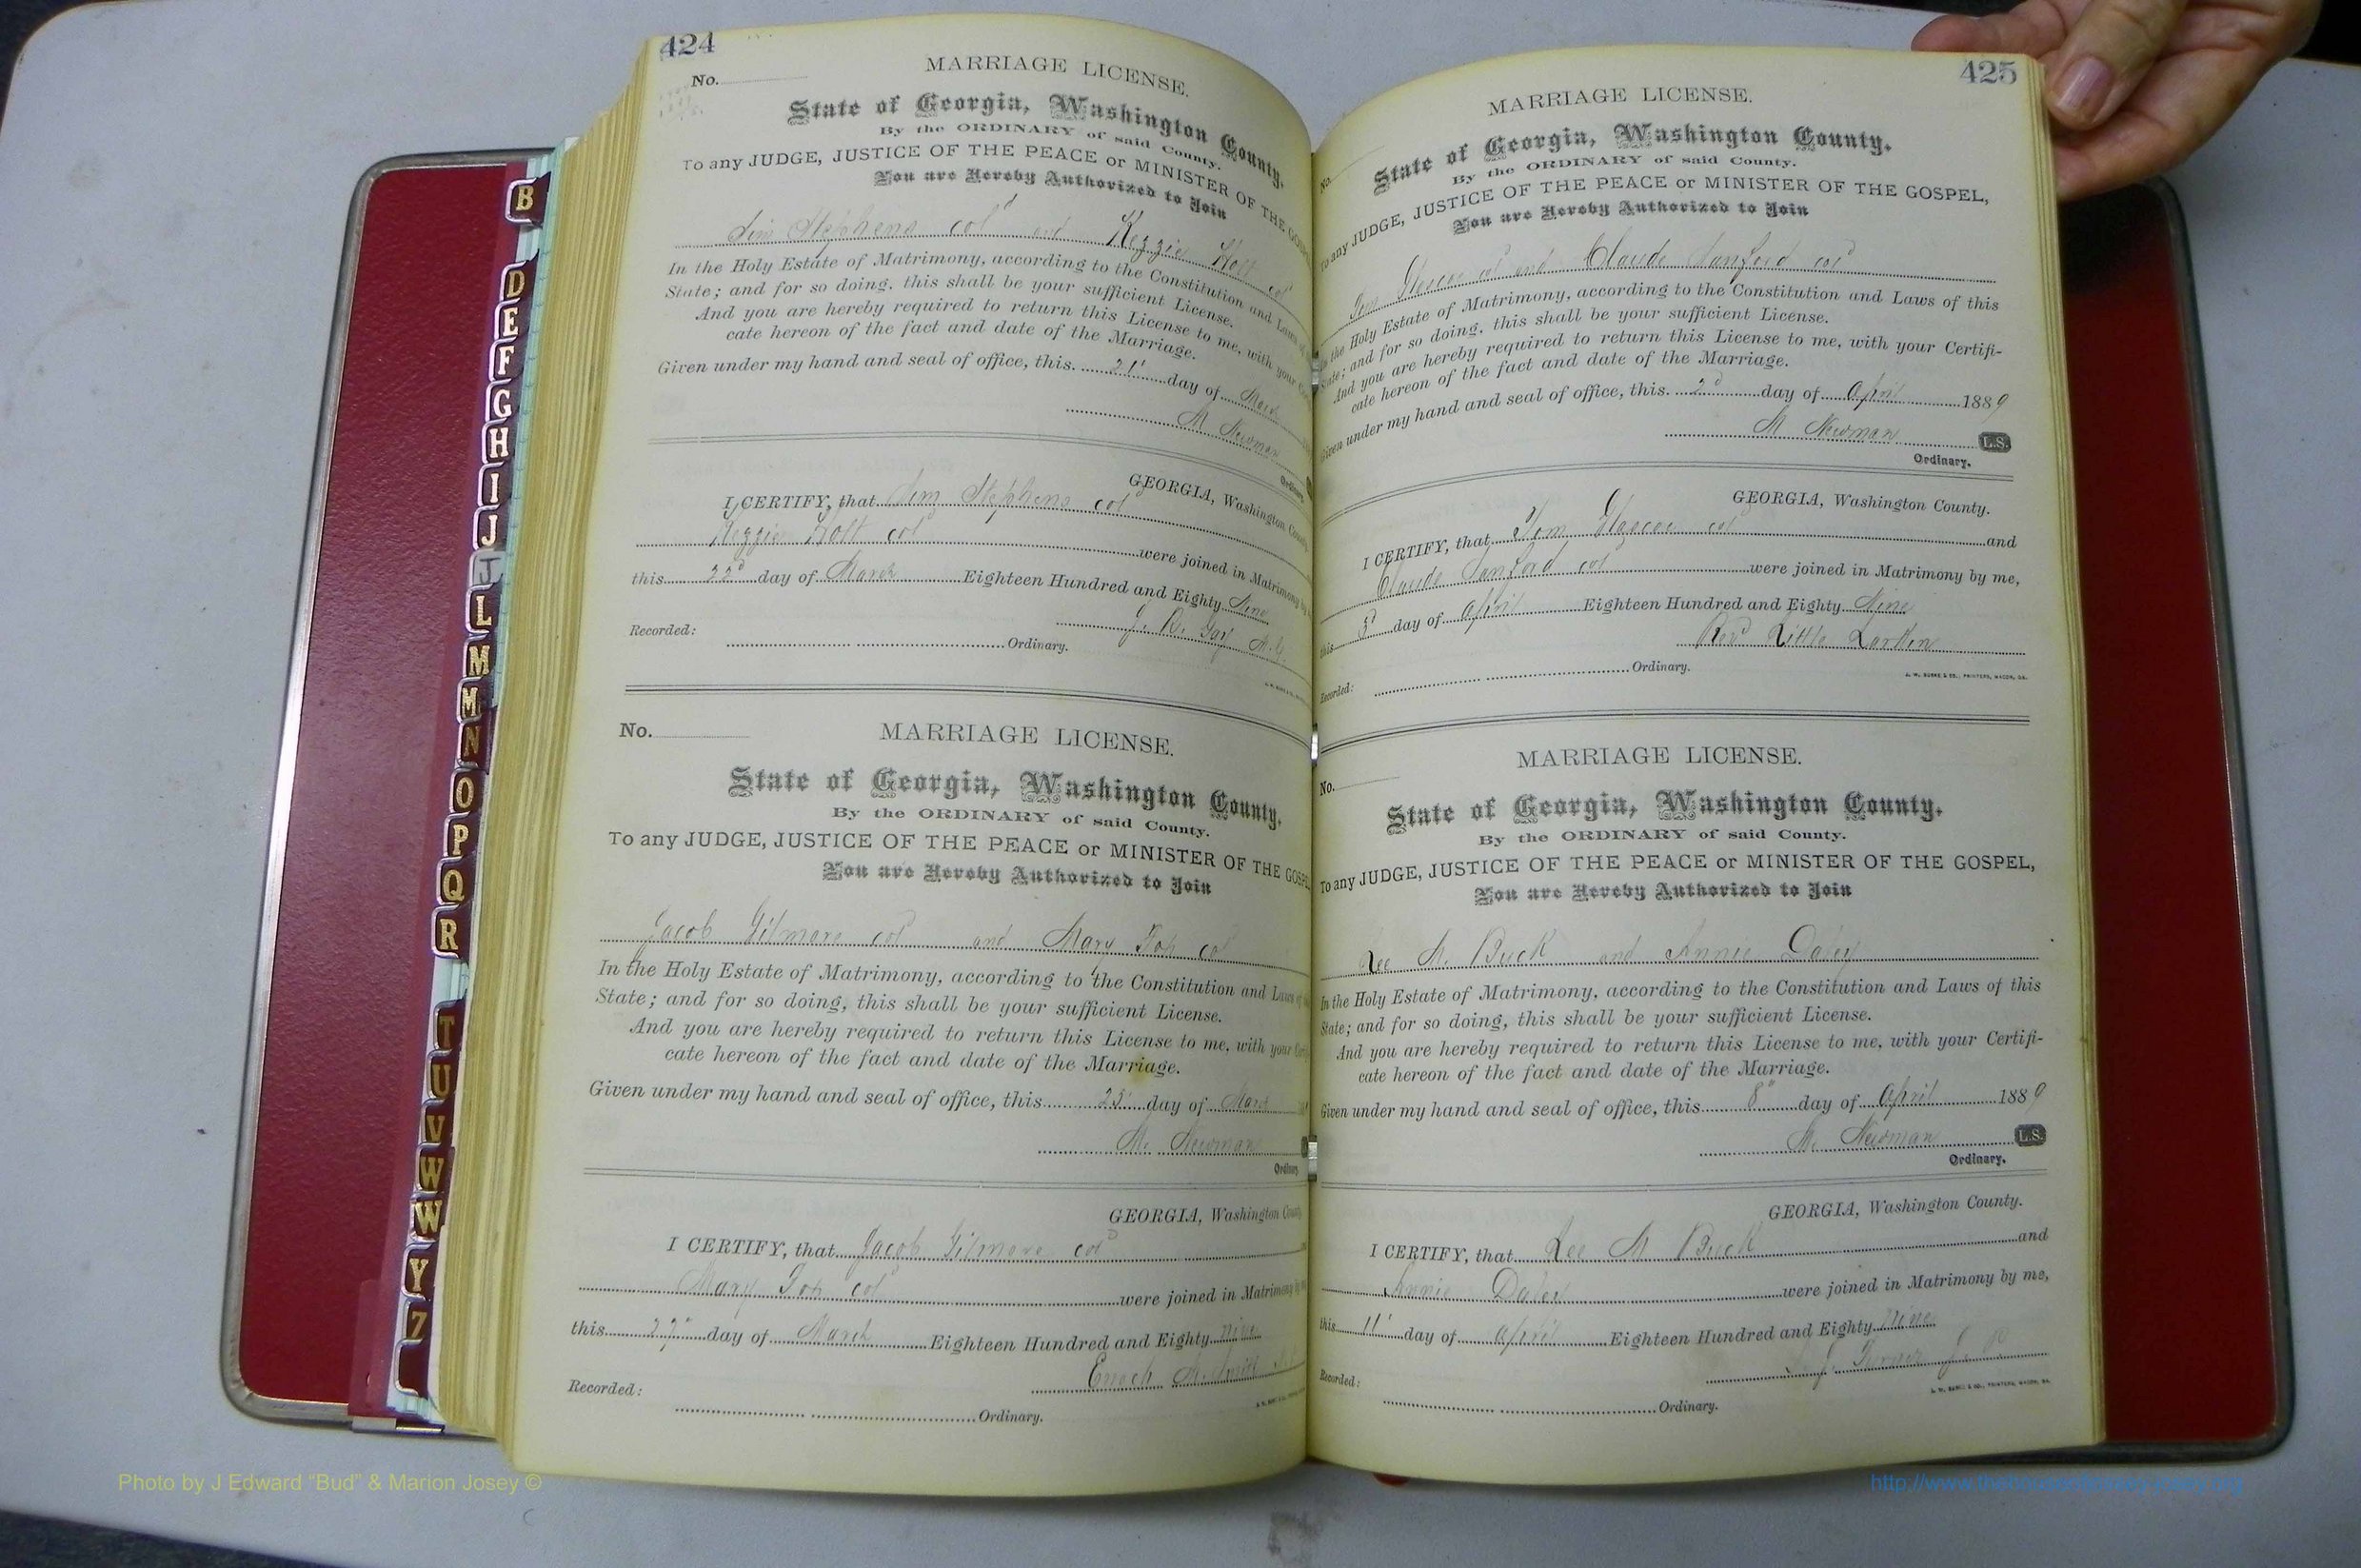 424
No.
MARRIAGE LICENSE.
State of Georgia, Washington County.
By the ORDINARY of said County.
To any JUDGE, JUSTICE OF THE PEACE or MINISTER OF THE
You are Hereby Authorized to Join
Stephens col and Kezzie Holt col
In the Holy Estate of Matrimony, according to the Constitution and Laws
State; and for so doing, this shall be your sufficient License.
And you are hereby required to return this License to me, with your
cate hereon of the fact and date of the Marriage.
Given under my hand and seal of office, this 21 day of March
M Newman
Ordinary.
GEORGIA, Washington County
I CERTIFY, that Stephens col
Kezzie Holt col were joined in Matrimony
this 22d day of March Eighteen Hundred and Eighty Nine
Recorded: Ordinary.
No.
MARRIAGE LICENSE.
State of Georgia, Washington County.
By the ORDINARY of said County.
To any JUDGE, JUSTICE OF THE PEACE or MINISTER OF THE
You are Hereby Authorized to Join
Jacob Gilmore col and Mary col
In the Holy Estate of Matrimony, according to the Constitution and Laws
State; and for so doing, this shall be your sufficient License.
And you are hereby required to return this License to me, with your
cate hereon of the fact and date of the Marriage.
Given under my hand and seal of office, this day of March
M. Newman
Ordinary.
GEORGIA, Washington
I CERTIFY, that Jacob Gilmore col
Mary col were joined in Matrimony
this day of March Eighteen Hundred and Eighty nine
Enoch
Recorded: Ordinary.
425
No.
MARRIAGE LICENSE.
State of Georgia, Washington County.
By the ORDINARY of said County.
To any JUDGE, JUSTICE OF THE PEACE or MINISTER OF THE GOSPEL,
You are Hereby Authorized to Join
Tom Glascoe col and Claude Sanford col
In the Holy Estate of Matrimony, according to the Constitution and Laws of this
State; and for so doing, this shall be your sufficient License.
And you are hereby required to return this License to me, with your Certifi-
cate hereon of the fact and date of the Marriage.
Given under my hand and seal of office, this 2d day of April 1889
M Newman L.S.
Ordinary.
GEORGIA, Washington County.
I CERTIFY, that Tom Glascoe col and
Claude Sanford col were joined in Matrimony by me,
this 3d day of April Eighteen Hundred and Eighty Nine
Revd Little Larkin
Recorded: Ordinary.
J. W. BURKE & CO., PRINTERS, MACON, GA.
MARRIAGE LICENSE.
No.
State of Georgia, Washington County.
By the ORDINARY of said County.
To any JUDGE, JUSTICE OF THE PEACE or MINISTER OF THE GOSPEL,
You are Hereby Authorized to Join
Lee M. Buck and Annie Daley
In the Holy Estate of Matrimony, according to the Constitution and Laws of this
State; and for so doing, this shall be your sufficient License.
And you are hereby required to return this License to me, with your Certifi-
cate hereon of the fact and date of the Marriage.
Given under my hand and seal of office, this 8" day of April 1889
M. Newman L.S.
Ordinary.
GEORGIA, Washington County.
I CERTIFY, that Lee M Buck and
Annie Daley were joined in Matrimony by me,
this 11' day of April Eighteen Hundred and Eighty nine
Recorded: Ordinary.
J. W. BURKE & CO., PRINTERS, MACON, GA.
B
D
E
F
G
H
I
J
J
L
M
M
N
O
P
Q
R
T
U
V
W
W
Y
Z
Photo by J Edward “Bud” & Marion Josey ©